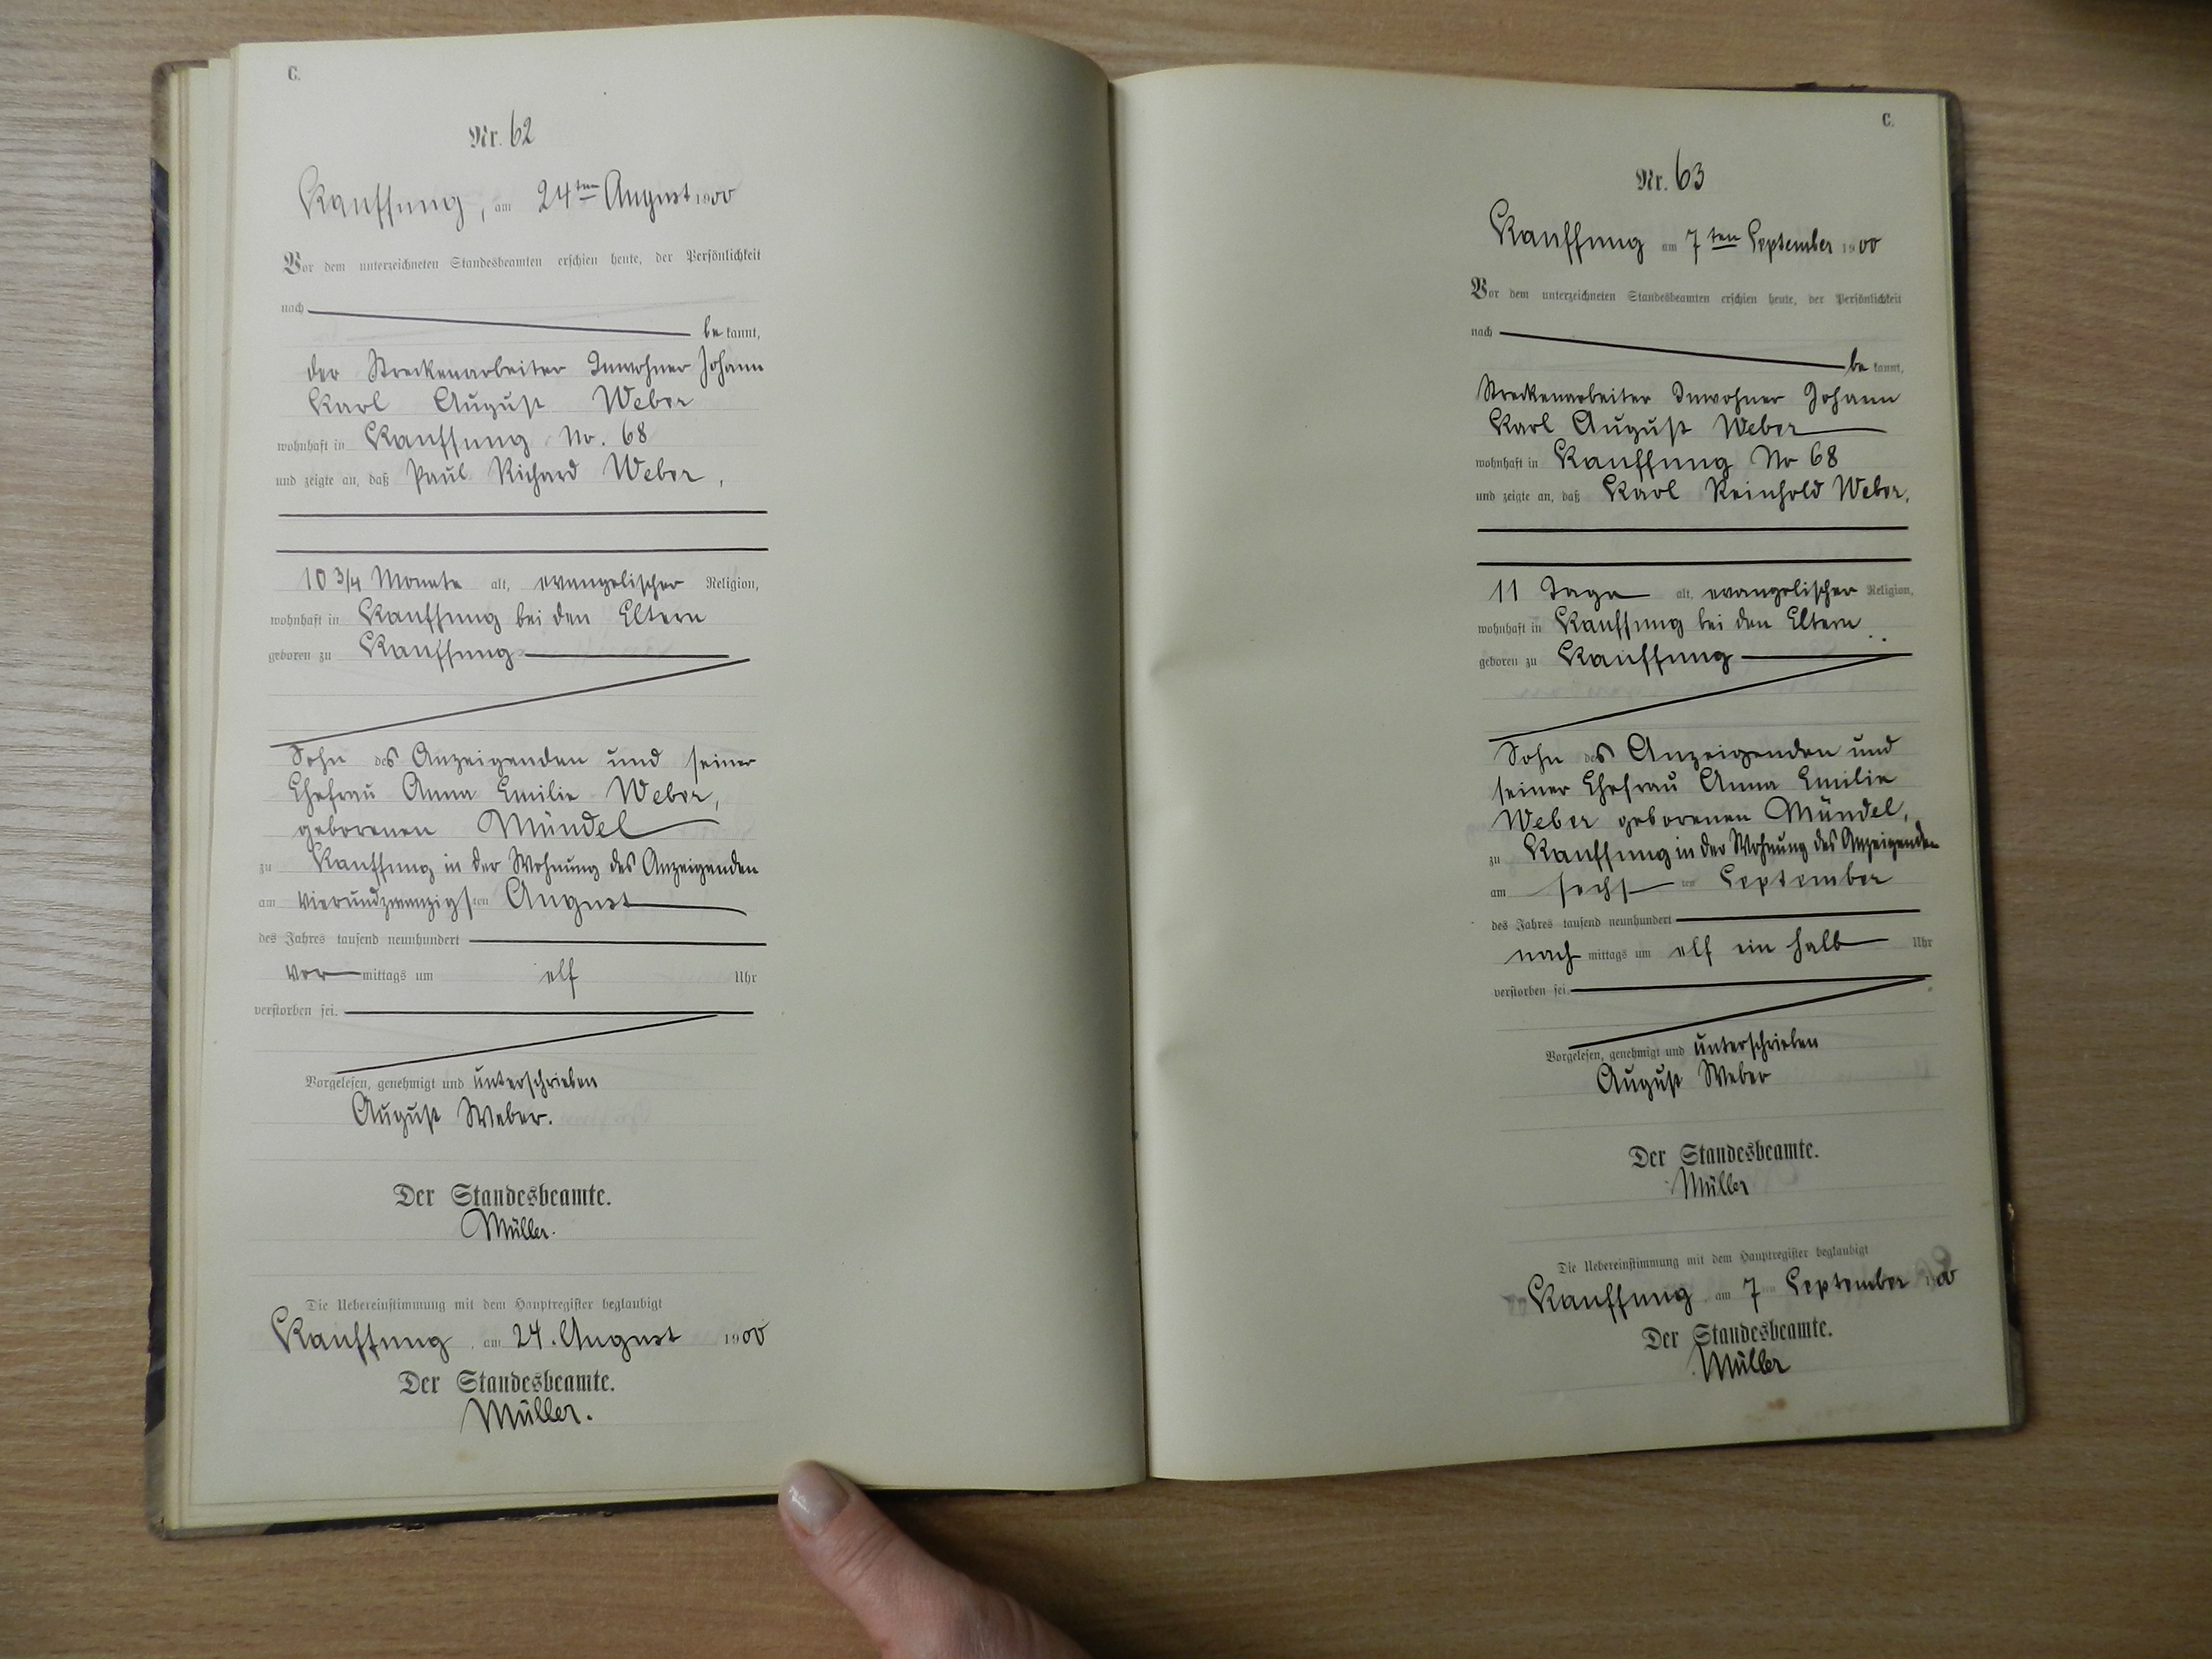 C.
Nr. 62
Kauffung, am 24ten August 1900
Vor dem unterzeichneten Standesbeamten erschien heute, der Persönlichkeit
nach
bekannt,
der Streckenarbeiter Inwohner Johann
Karl August Weber
wohnhaft in Kauffung No. 68
und zeigte an, daß Paul Richard Weber,
10 3/4 Monate alt, evangelischer Religion,
wohnhaft in Kauffung bei den Eltern
geboren zu Kauffung
Sohn des Anzeigenden und seiner
Ehefrau Anna Emilie Weber,
geborenen Mündel
zu Kauffung in der Wohnung des Anzeigenden
am vierundzwanzigsten August
des Jahres tausend neunhundert
vormittags um elf Uhr
verstorben sei.
Vorgelesen, genehmigt und unterschrieben
August Weber.
Der Standesbeamte.
Müller.
Die Uebereinstimmung mit dem Hauptregister beglaubigt
Kauffung, am 24. August 1900
Der Standesbeamte.
Müller.
C.
Nr. 63
Kauffung am 7ten September 1900
Vor dem unterzeichneten Standesbeamten erschien heute, der Persönlichkeit
nach
bekannt,
Streckenarbeiter Inwohner Johann
Karl August Weber
wohnhaft in Kauffung No 68
und zeigte an, daß Karl Reinhold Weber,
11 Tage alt, evangelischer Religion,
wohnhaft in Kauffung bei den Eltern
geboren zu Kauffung
Sohn des Anzeigenden und
seiner Ehefrau Anna Emilie
Weber geborenen Mündel,
zu Kauffung in der Wohnung des Anzeigenden
am sechsten September
des Jahres tausend neunhundert
nachmittags um elf ein halb Uhr
verstorben sei.
Vorgelesen, genehmigt und unterschrieben
August Weber
Der Standesbeamte.
Müller
Die Uebereinstimmung mit dem Hauptregister beglaubigt
Kauffung am 7ten September 1900
Der Standesbeamte.
Müller